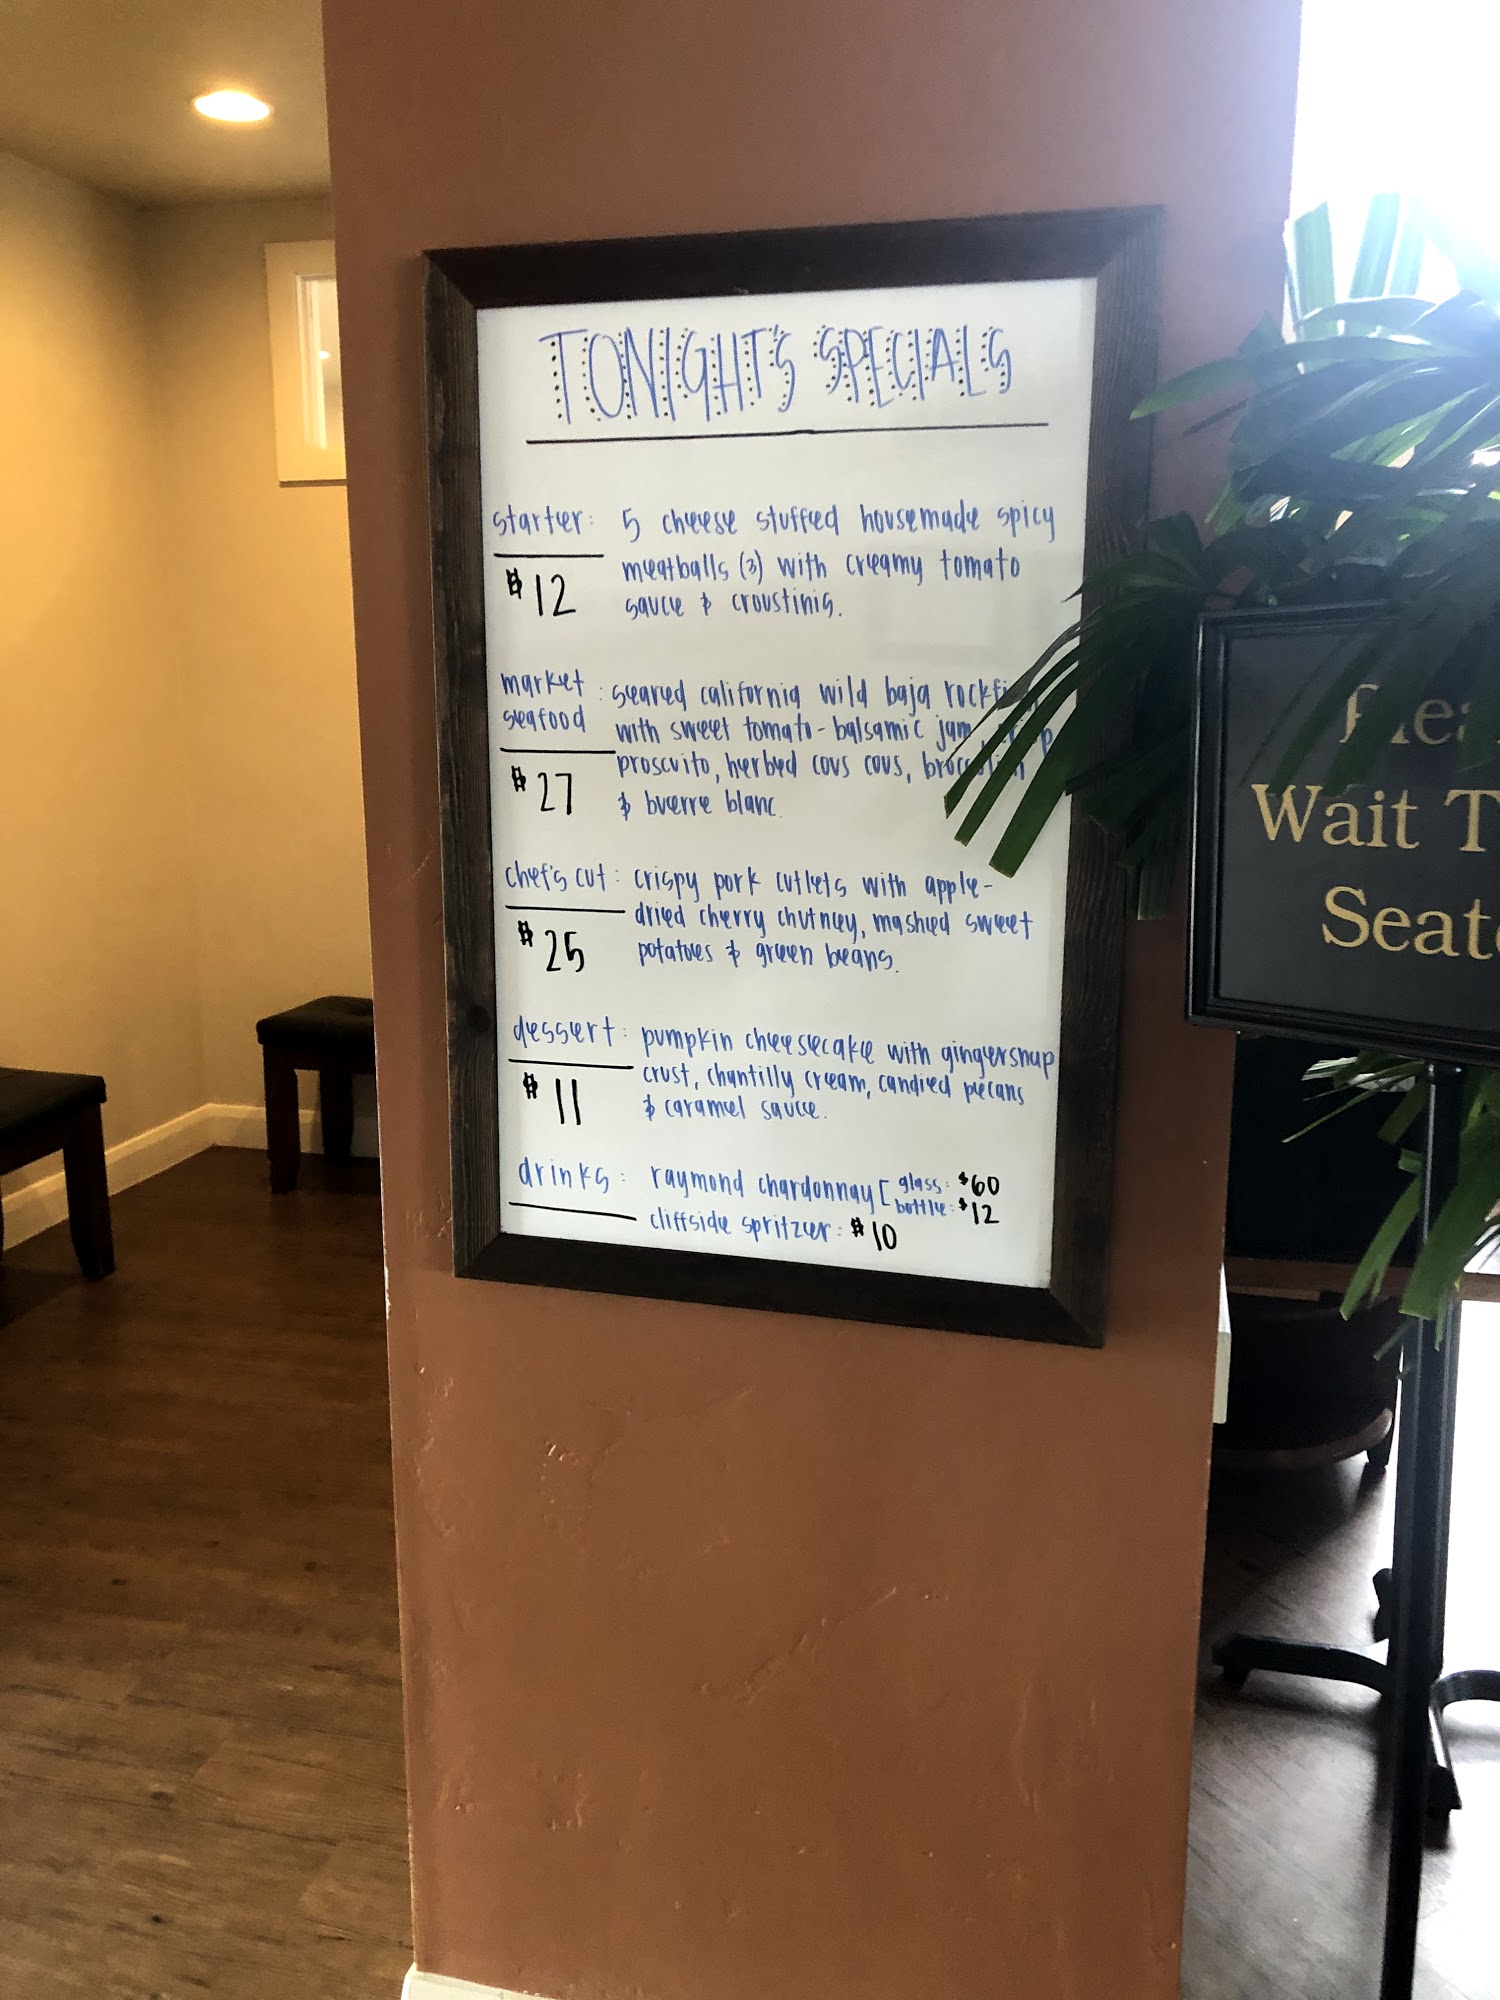 TONIGHT'S SPECIALS
starter: 5 cheese stuffed housemade spicy
meatballs (3) with creamy tomato
sauce & croustinis.
$12
market
seafood : seared california wild baja
with sweet tomato-balsamic jam
proscuito, herbed cous cous,
& buerre blanc.
$27
chef's cut: crispy pork cutlets with apple-
dried cherry chutney, mashed sweet
potatoes & green beans.
$25
dessert: pumpkin cheesecake with gingersnap
crust, chantilly cream, candied pecans
& caramel sauce.
$11
drinks: raymond chardonnay [ glass: $60
bottle: $12
cliffside spritzer: $10
Wait